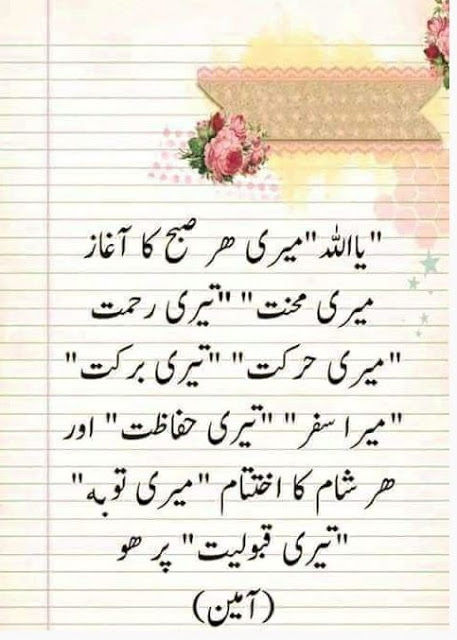 "یااللہ" میری ھر صبح کا آغاز
میری محنت" "تیری رحمت
"میری حرکت" "تیری برکت"
"میرا سفر" "تیری حفاظت" اور
ھر شام کا اختتام "میری توبہ"
"تیری قبولیت" پر ھو
(آمین)